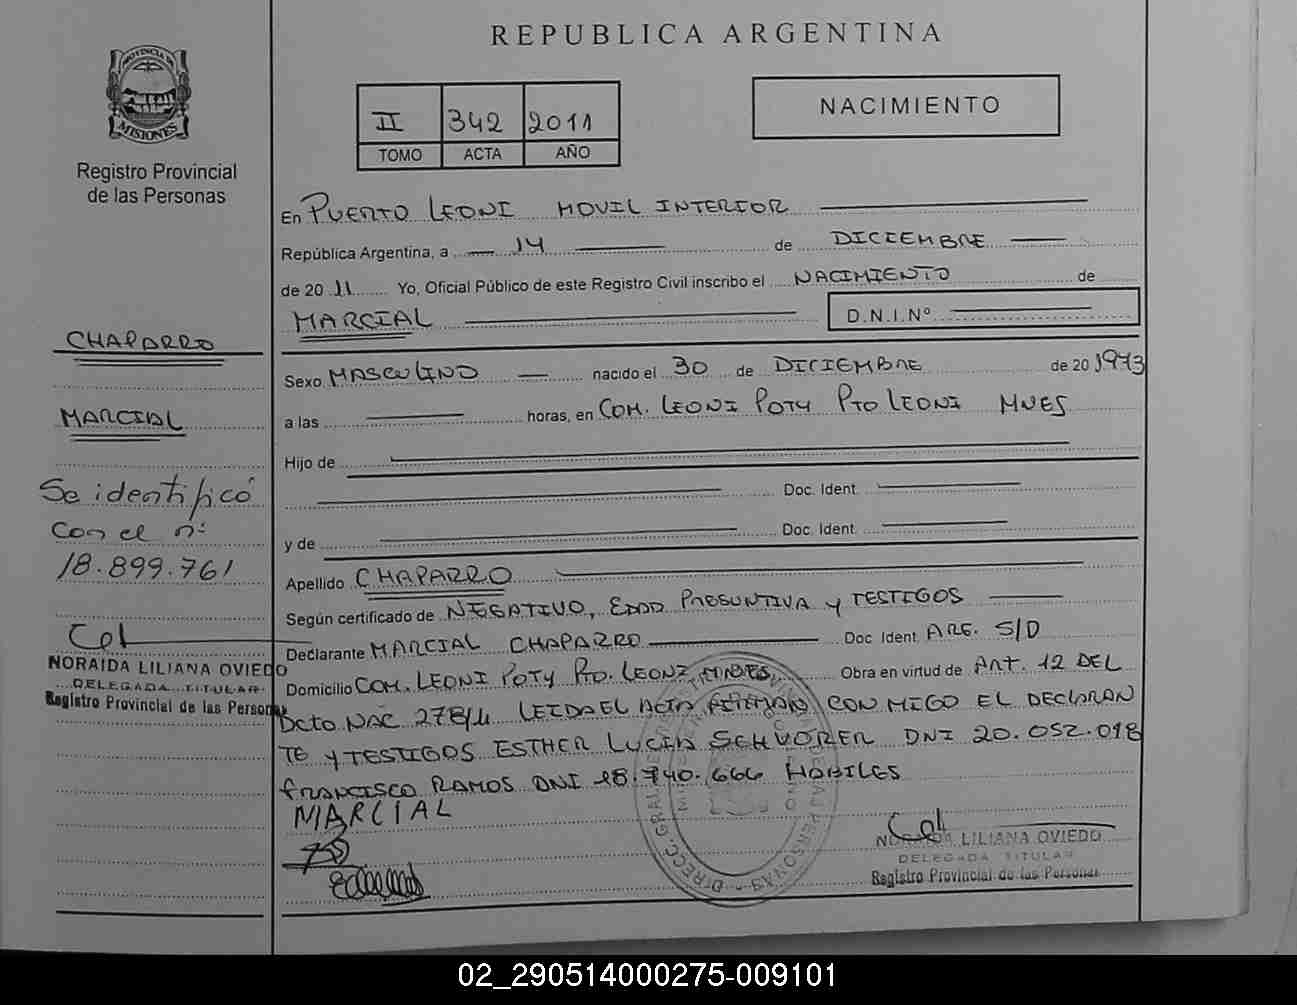 REPUBLICA ARGENTINA
PROVINCIA DE MISIONES
Registro Provincial
de las Personas
II 342 2011
TOMO ACTA AÑO
NACIMIENTO
En PUERTO LEONI MOVIL INTERIOR
República Argentina, a 14 de DICIEMBRE
de 20 11 Yo, Oficial Público de este Registro Civil inscribo el NACIMIENTO de
MARCIAL D.N.I.Nº
CHAPARRO
MARCIAL
Se identificó
con el nº
18.899.761
NORAIDA LILIANA OVIEDO
DELEGADA TITULAR
Registro Provincial de las Personas
Sexo MASCULINO nacido el 30 de DICIEMBRE de 20 1973
a las horas, en COM. LEONI POTY PTO LEONI MNES
Hijo de
Doc. Ident.
y de Doc. Ident.
Apellido CHAPARRO
Según certificado de NEGATIVO, EDAD PRESUNTIVA y TESTIGOS
Declarante MARCIAL CHAPARRO Doc Ident ARG. S/D
Domicilio COM. LEONI POTY PTO. LEONI MNES, Obra en virtud de ART. 12 DEL
DCTO NAC 278/11 LEIDA EL ACTA FIRMAN CON MIGO EL DECLARAN
TE y TESTIGOS ESTHER LUCIA SCHVORER DNI 20.052.018
FRANCISCO RAMOS DNI 18.740.666 HABILES
MARCIAL
NORAIDA LILIANA OVIEDO
DELEGADA TITULAR
Registro Provincial de las Personas
02_290514000275-009101